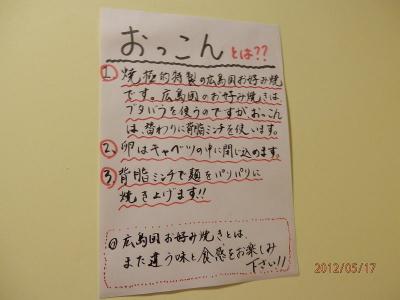 おっこんとは??
1、焼極的特製の広島風お好み焼
です。広島風のお好み焼きは、
ブタバラを使うのですがおっこん
は、替わりに背脂ミンチを使います。
2、卵はキャベツの中に閉じ込めます。
3、背脂ミンチで麺をパリパリに
焼き上げます!!
@広島風お好み焼きとは、
また違う味と食感をお楽しみ
下さい!!
2012/05/17